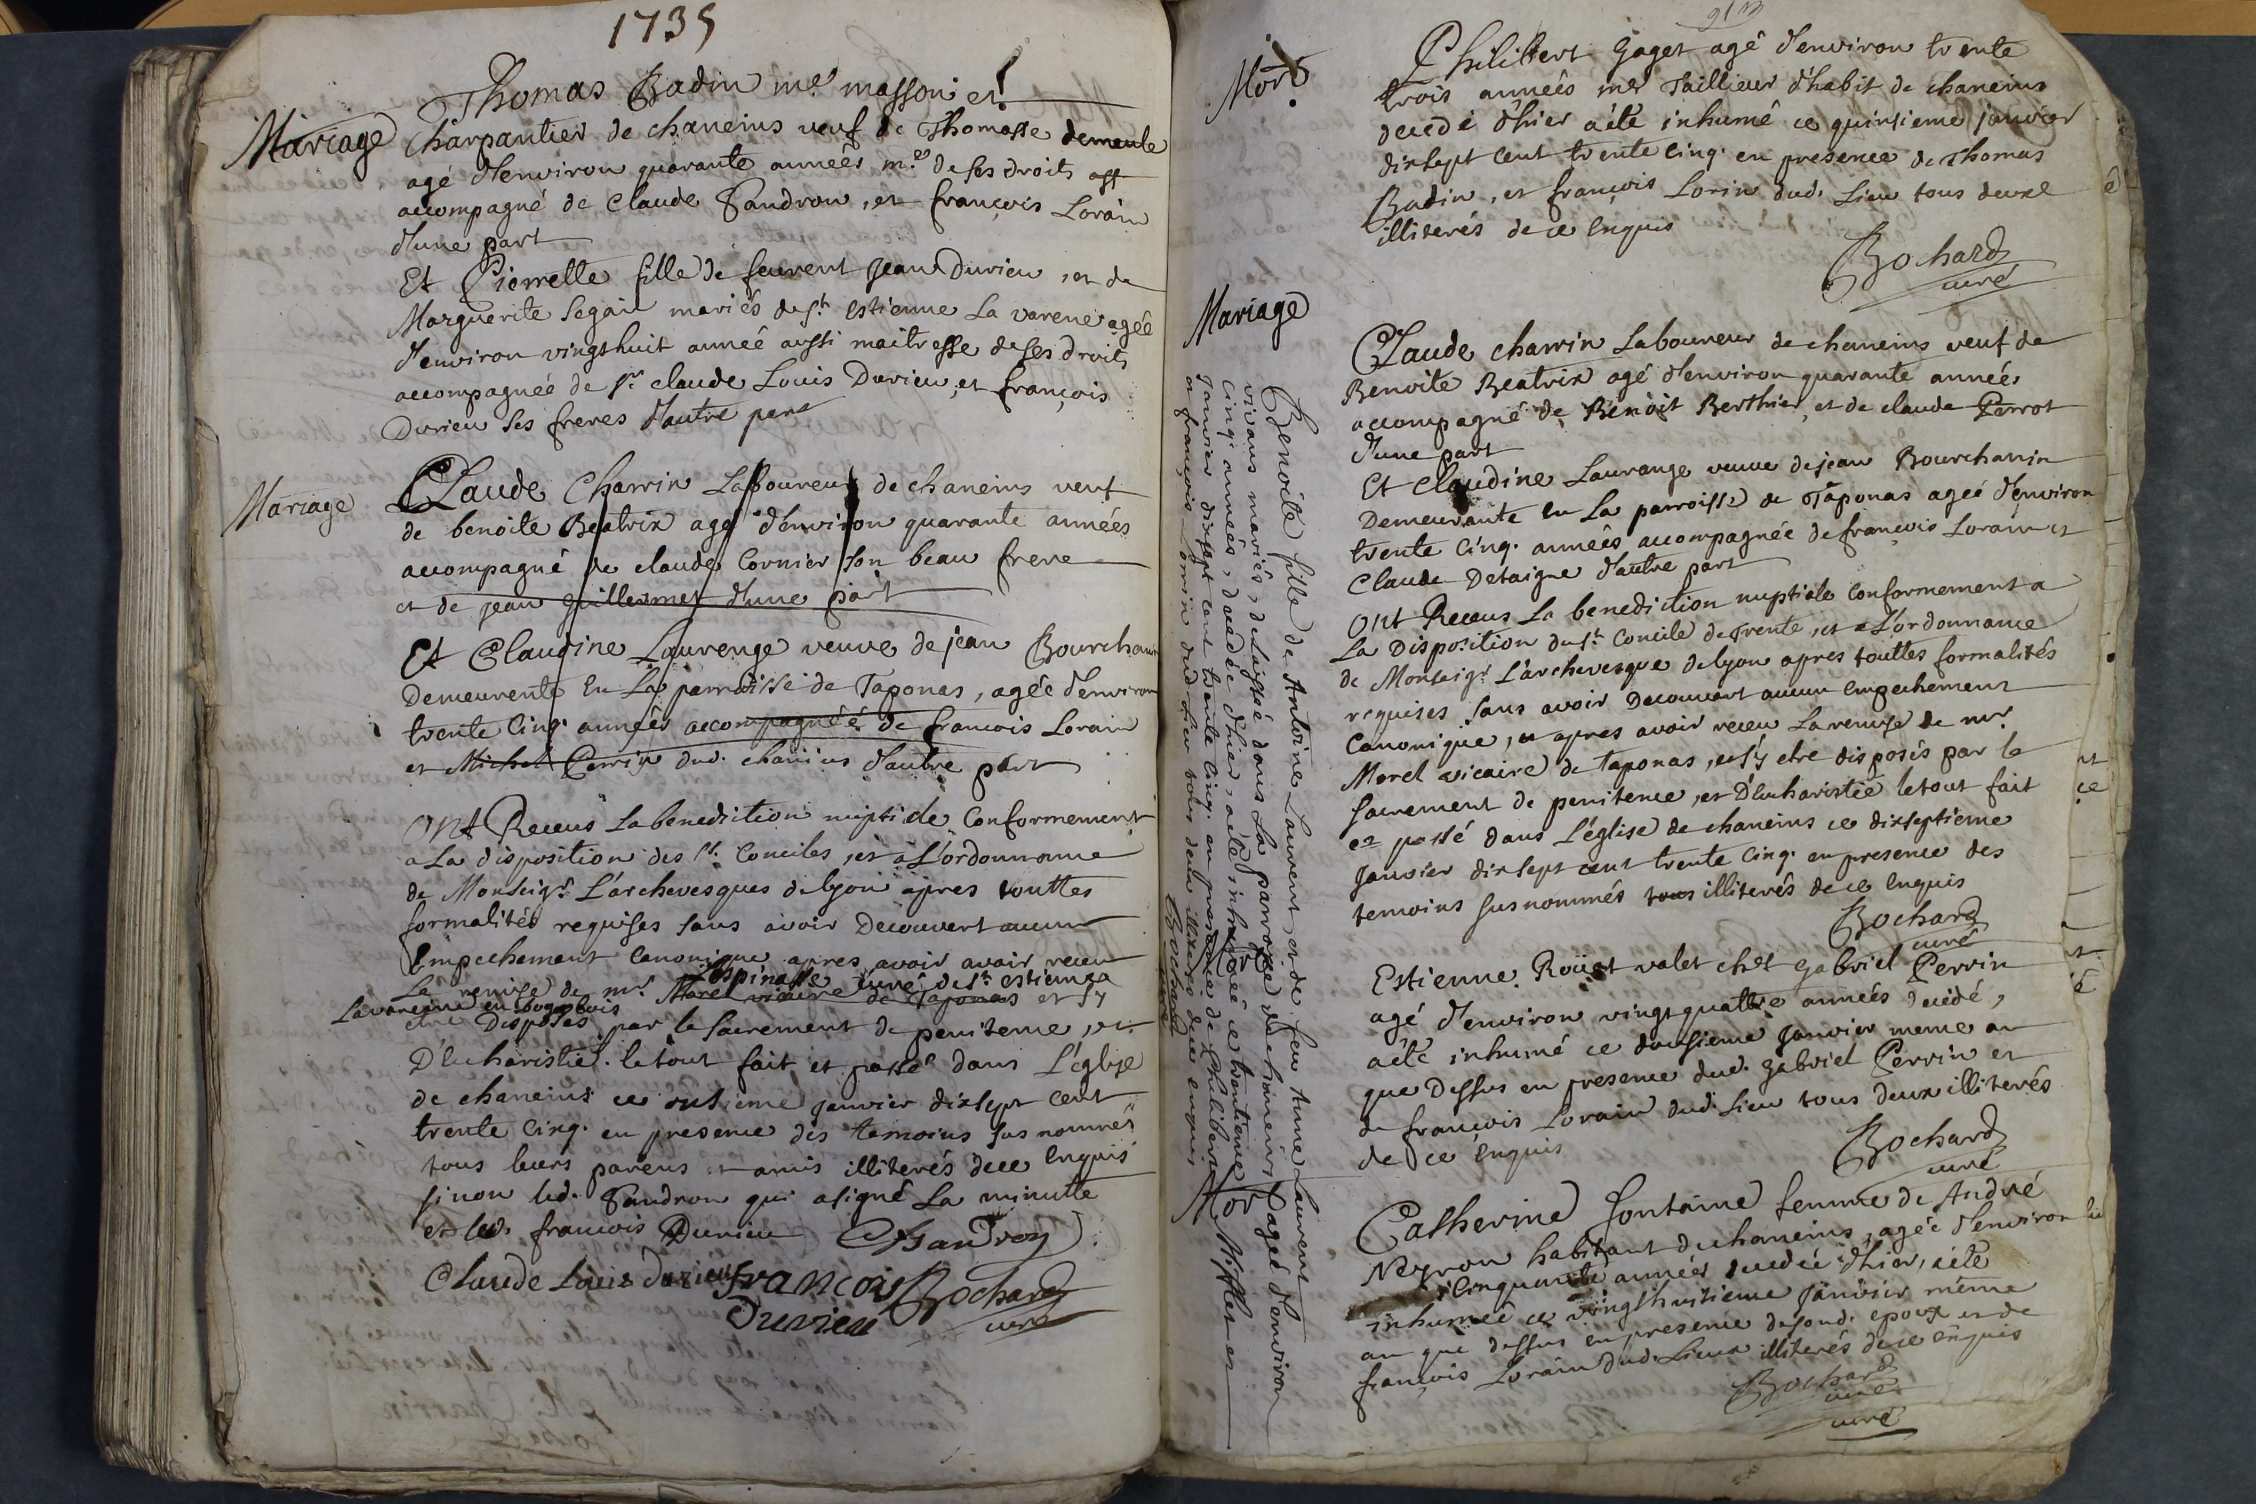 1735
Mariage
Thomas Badin me masson et
Charpantier de chaneins veuf de Thomasse demeule
agé d'environ quarante années me de ses droits
accompagné de Claude Sandron, et françois Lorain
d'une part
Et Pierrette fille de Jean Durieu, et de
Marguerite Segain mariés de st estienne La varene agée
d'environ vingt huit année aussi maitresse de ses droits
accompagnée de sr claude Louis Durieu, et françois
Durieu ses freres d'autre part
Mariage
Claude Charrin Laboureur de chaneins veuf
de benoite Beatrix agé d'environ quarante années
accompagné de claude Cornier son beau frere
et de jean guillermet d'une part
Et Claudine Laurenge veuve de jean Bourcharin
Demeurente En La parroisse de Taponas, agée d'environ
trente Cinq. années accompagnéé de francois Lorain
et Michel Perrin dud. chaneins d'autre part
Ont Receus La benediction nuptiale Conformement
a La disposition des sts. Conciles, et a L'ordonnance
de Monseigr L'archevesques de lyon apres touttes
formalités requises sans avoir Decouvert aucun
Empechement Canonique apres avoir avoir receu
La remise de mr Lespinasse curé de st estienne La
Morel vicaire de Taponas et s'y
Lavarenne en
etre Disposés par le sacrement de penitence, et
D'Eucharistie. le tout fait et passé dans L'église
de chaneins ce onsieme janvier dixsept cent
trente Cinq. en presence des temoins sus nommés
tous leurs parens et amis illiterés de ce Enquis
sinon led. Sandron qui a signé La minutte
et led. francois Durieu CSandron
Claude Louis durieu francois Bochard
Durieu curé
Mort
Philibert Gaget agé d'environ trente
trois années me Taillieur d'habit de chaneins
decedé d'hier a été inhumé ce quinsieme janvier
dixsept Cent trente Cinq. en presence de Thomas
Badin, et françois Lorin dud. Lieu tous deux
illiterés de ce Enquis
Bochard
curé
Mariage
Claude charrin Laboureur de chaneins veuf de
Benoite Beatrix agé d'environ quarante années
accompagné de Benoit Berthier, et de claude Perrot
d'une part
Et Claudine Laurange veuve de jean Bourcharrin
Demeurante En La parroisse de Taponas ageé d'environ
trente Cinq. années accompagnée de françois Lorain et
Claude Detaigne d'autre part
Ont Receus La benediction nuptiale Conformement a
La Disposition du st. Concile de Trente, et a L'ordonnance
de Monseigr. L'archevesque de lyon apres touttes formalités
requises sans avoir Decouvert aucun Empechement
Canonique, et apres avoir receu La remise de mr.
Morel vicaire de taponas, et s'y etre disposés par le
sacrement de penitence, et D'Eucharistie le tout fait
et passé dans L'église de chaneins ce dixseptieme
janvier dixsept cent trente Cinq. en presence des
temoins susnommés tous illiterés de ce Enquis
Bochard
curé
Estienne Roüet valet chet gabriel Perrin
agé d'environ vingt quattre années decedé,
a été inhumé ce dousieme janvier meme an
que Dessus en presence dud. gabriel Perrin et
de françois Lorain dud. Lieu tous deux illiterés
de ce Enquis
Bochard
curé
Catherine fontaine femme de André
Neyron habitant de chaneins, agée d'environ
Cinquante années decedée d'hier, a été
inhumeé ce vingthuitieme janvier même
an que dessus en presence de sond. epoux et de
françois Lorain dud. Lieux illiterés de ce Enquis
Bochard
curé
curé
Benoite fille de Antoine Laurent, et de feu Anne Laurent
vivans mariés, delaissé dans La parroisse de chaneins agée d'environ
Cinq. années, decedée d'hier, a été inhumée ce trentieme
janvier dixsept cent trente Cinq. en presence de Philibert Mifflet et
de françois Lorrin dud. Lieu tous deux illiterés de ce enquis
Bochard
curé
Mor